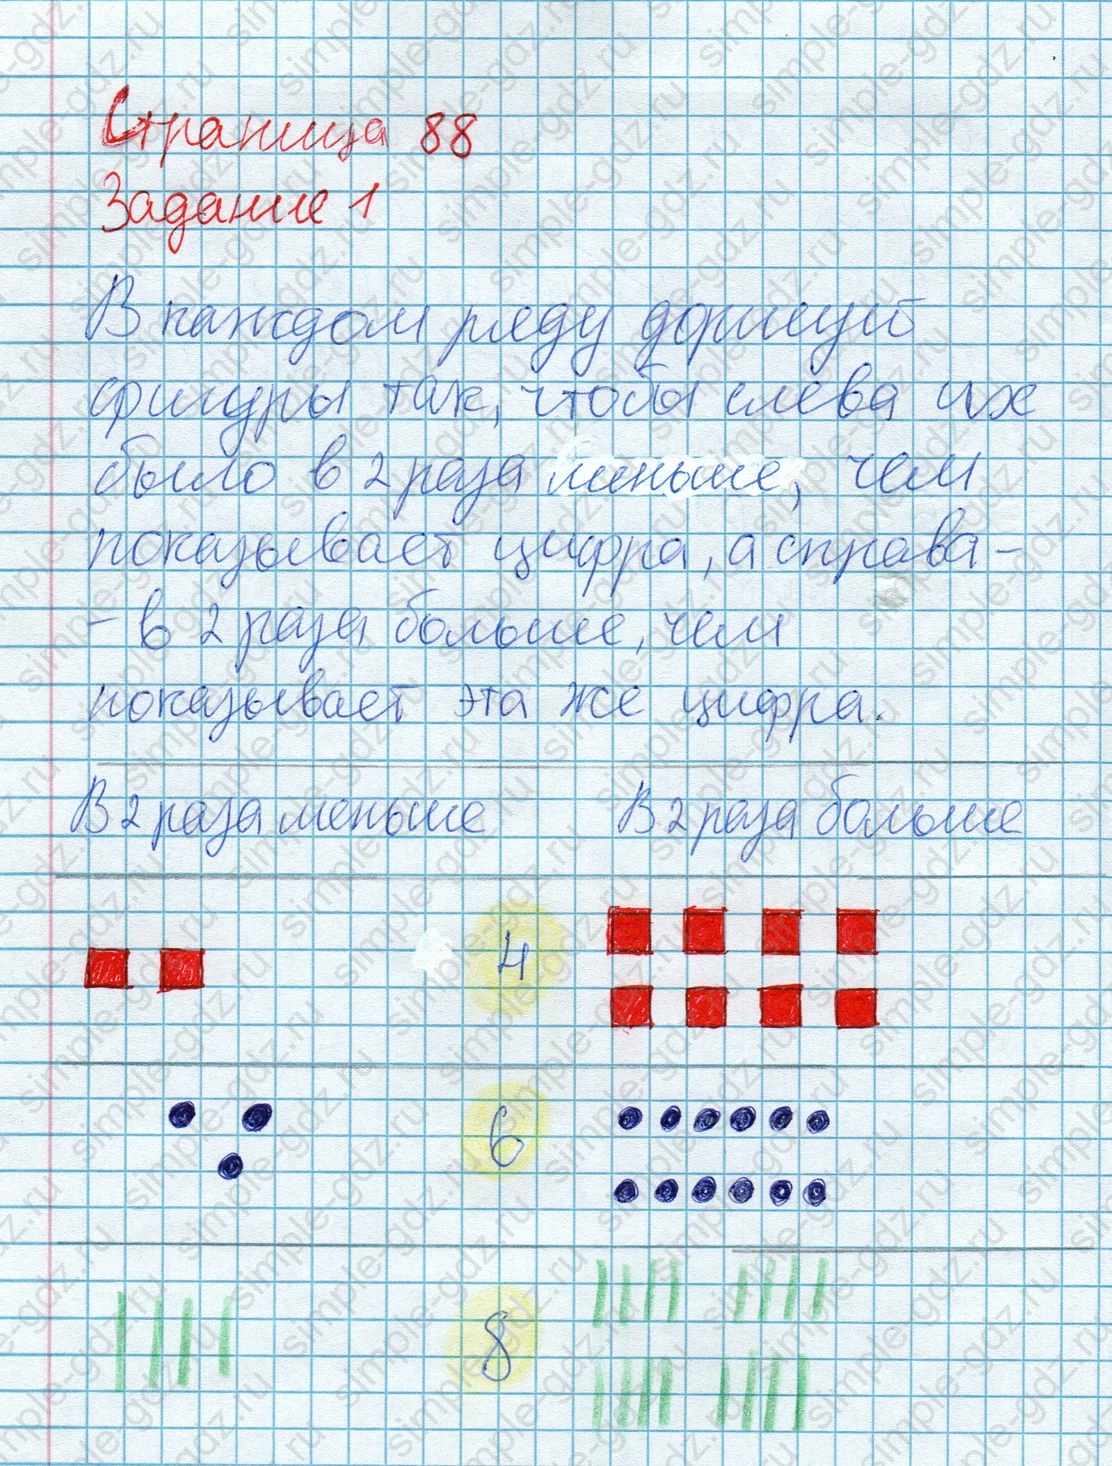 Страница 88
Задание 1
В каждом ряду дорисуй
фигуры так, чтобы слева их
было в 2 раза меньше, чем
показывает цифра, а справа -
- в 2 раза больше, чем
показывает эта же цифра.
В 2 раза меньше В 2 раза больше
4
6
8
simple-gdz.ru